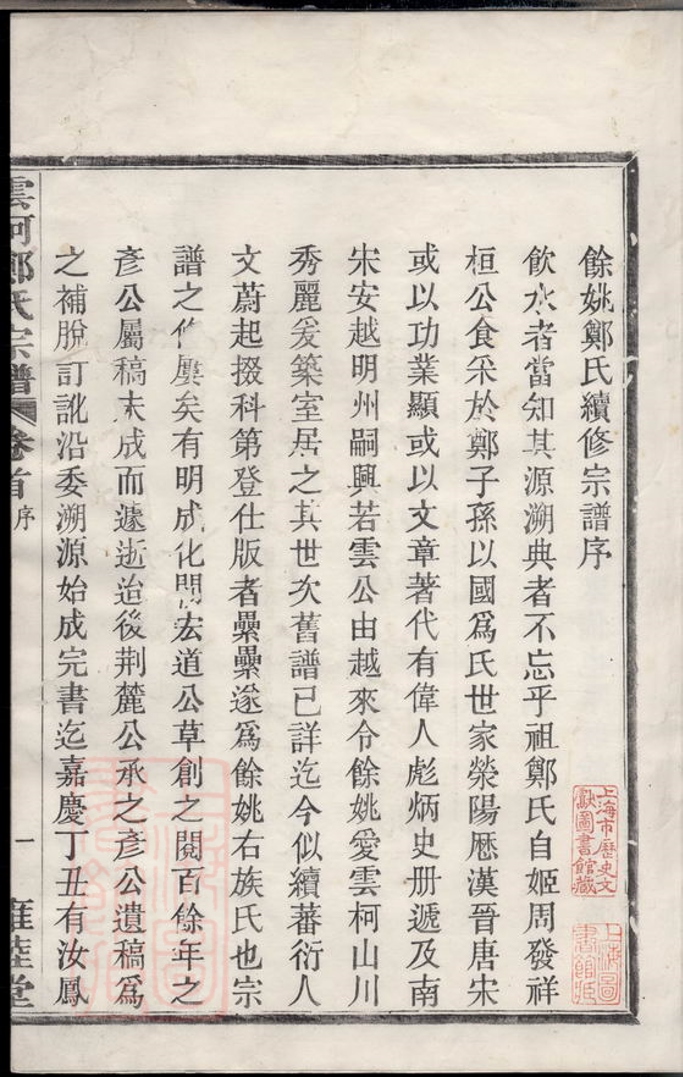 餘姚鄭氏續修宗譜序
飲水者當知其源溯典者不忘乎祖鄭氏自姬周發祥
桓公食采於鄭子孫以國爲氏世家滎陽厯漢晉唐宋
或以功業顯或以文章著代有偉人彪炳史册遞及南
宋安越明州嗣興若雲公由越來令餘姚愛雲柯山川
秀麗爰築室居之其世次舊譜已詳迄今似續蕃衍人
文蔚起掇科第登仕版者纍纍遂爲餘姚右族氏也宗
譜之作屢矣有明成化間宏道公草創之閱百餘年之
彥公屬稿未成而遽逝迨後荆麓公承之彥公遺稿爲
之補脫訂訛沿委溯源始成完書迄嘉慶丁丑有汝鳳
雲柯鄭氏宗譜 卷首 序 一 雍睦堂
上海市歷史文
獻圖書館藏
上海圖
書館藏